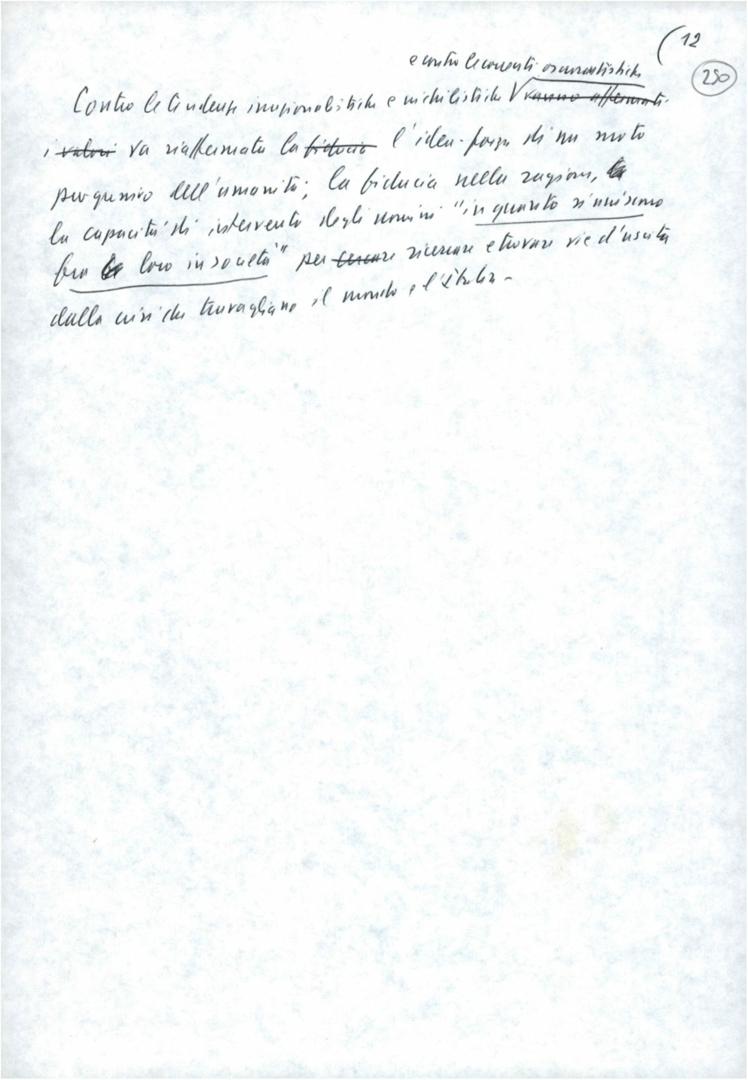 (12
250
e contro le correnti oscurantistiche
Contro le tendenze irrazionalistiche e nichilistiche √ vanno affermati
i valori va riaffermata la fiducia l'idea-forza di un moto
progressivo dell'umanità; la fiducia nella ragione, la
la capacità di intervento degli uomini "in quanto si uniscono
fra le loro in società" per cercare ricercare e trovare vie d'uscita
dalla crisi che travagliano il mondo e l'Italia -